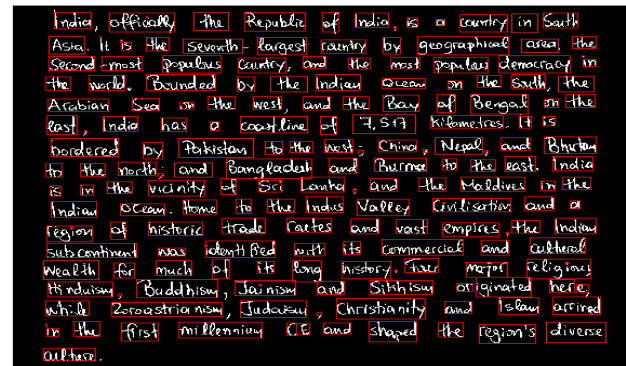 India, officially the Republic of India, is a country in South
Asia. It is the seventh-largest country by geographical area, the
second-most populous country, and the most populous democracy in
the world. Bounded by the Indian Ocean on the South, the
Arabian Sea on the west, and the Bay of Bengal on the
east, India has a coastline of 7,517 kilometres. It is
bordered by Pakistan to the west; China, Nepal, and Bhutan
to the north; and Bangladesh and Burma to the east. India
is in the vicinity of Sri Lanka, and the Maldives in the
Indian Ocean. Home to the Indus Valley Civilisation and a
region of historic trade routes and vast empires, the Indian
subcontinent was identified with its commercial and cultural
wealth for much of its long history. Four major religions,
Hinduism, Buddhism, Jainism and Sikhism originated here,
while Zoroastrianism, Judaism, Christianity and Islam arrived
in the first millennium CE and shaped the region's diverse
culture.